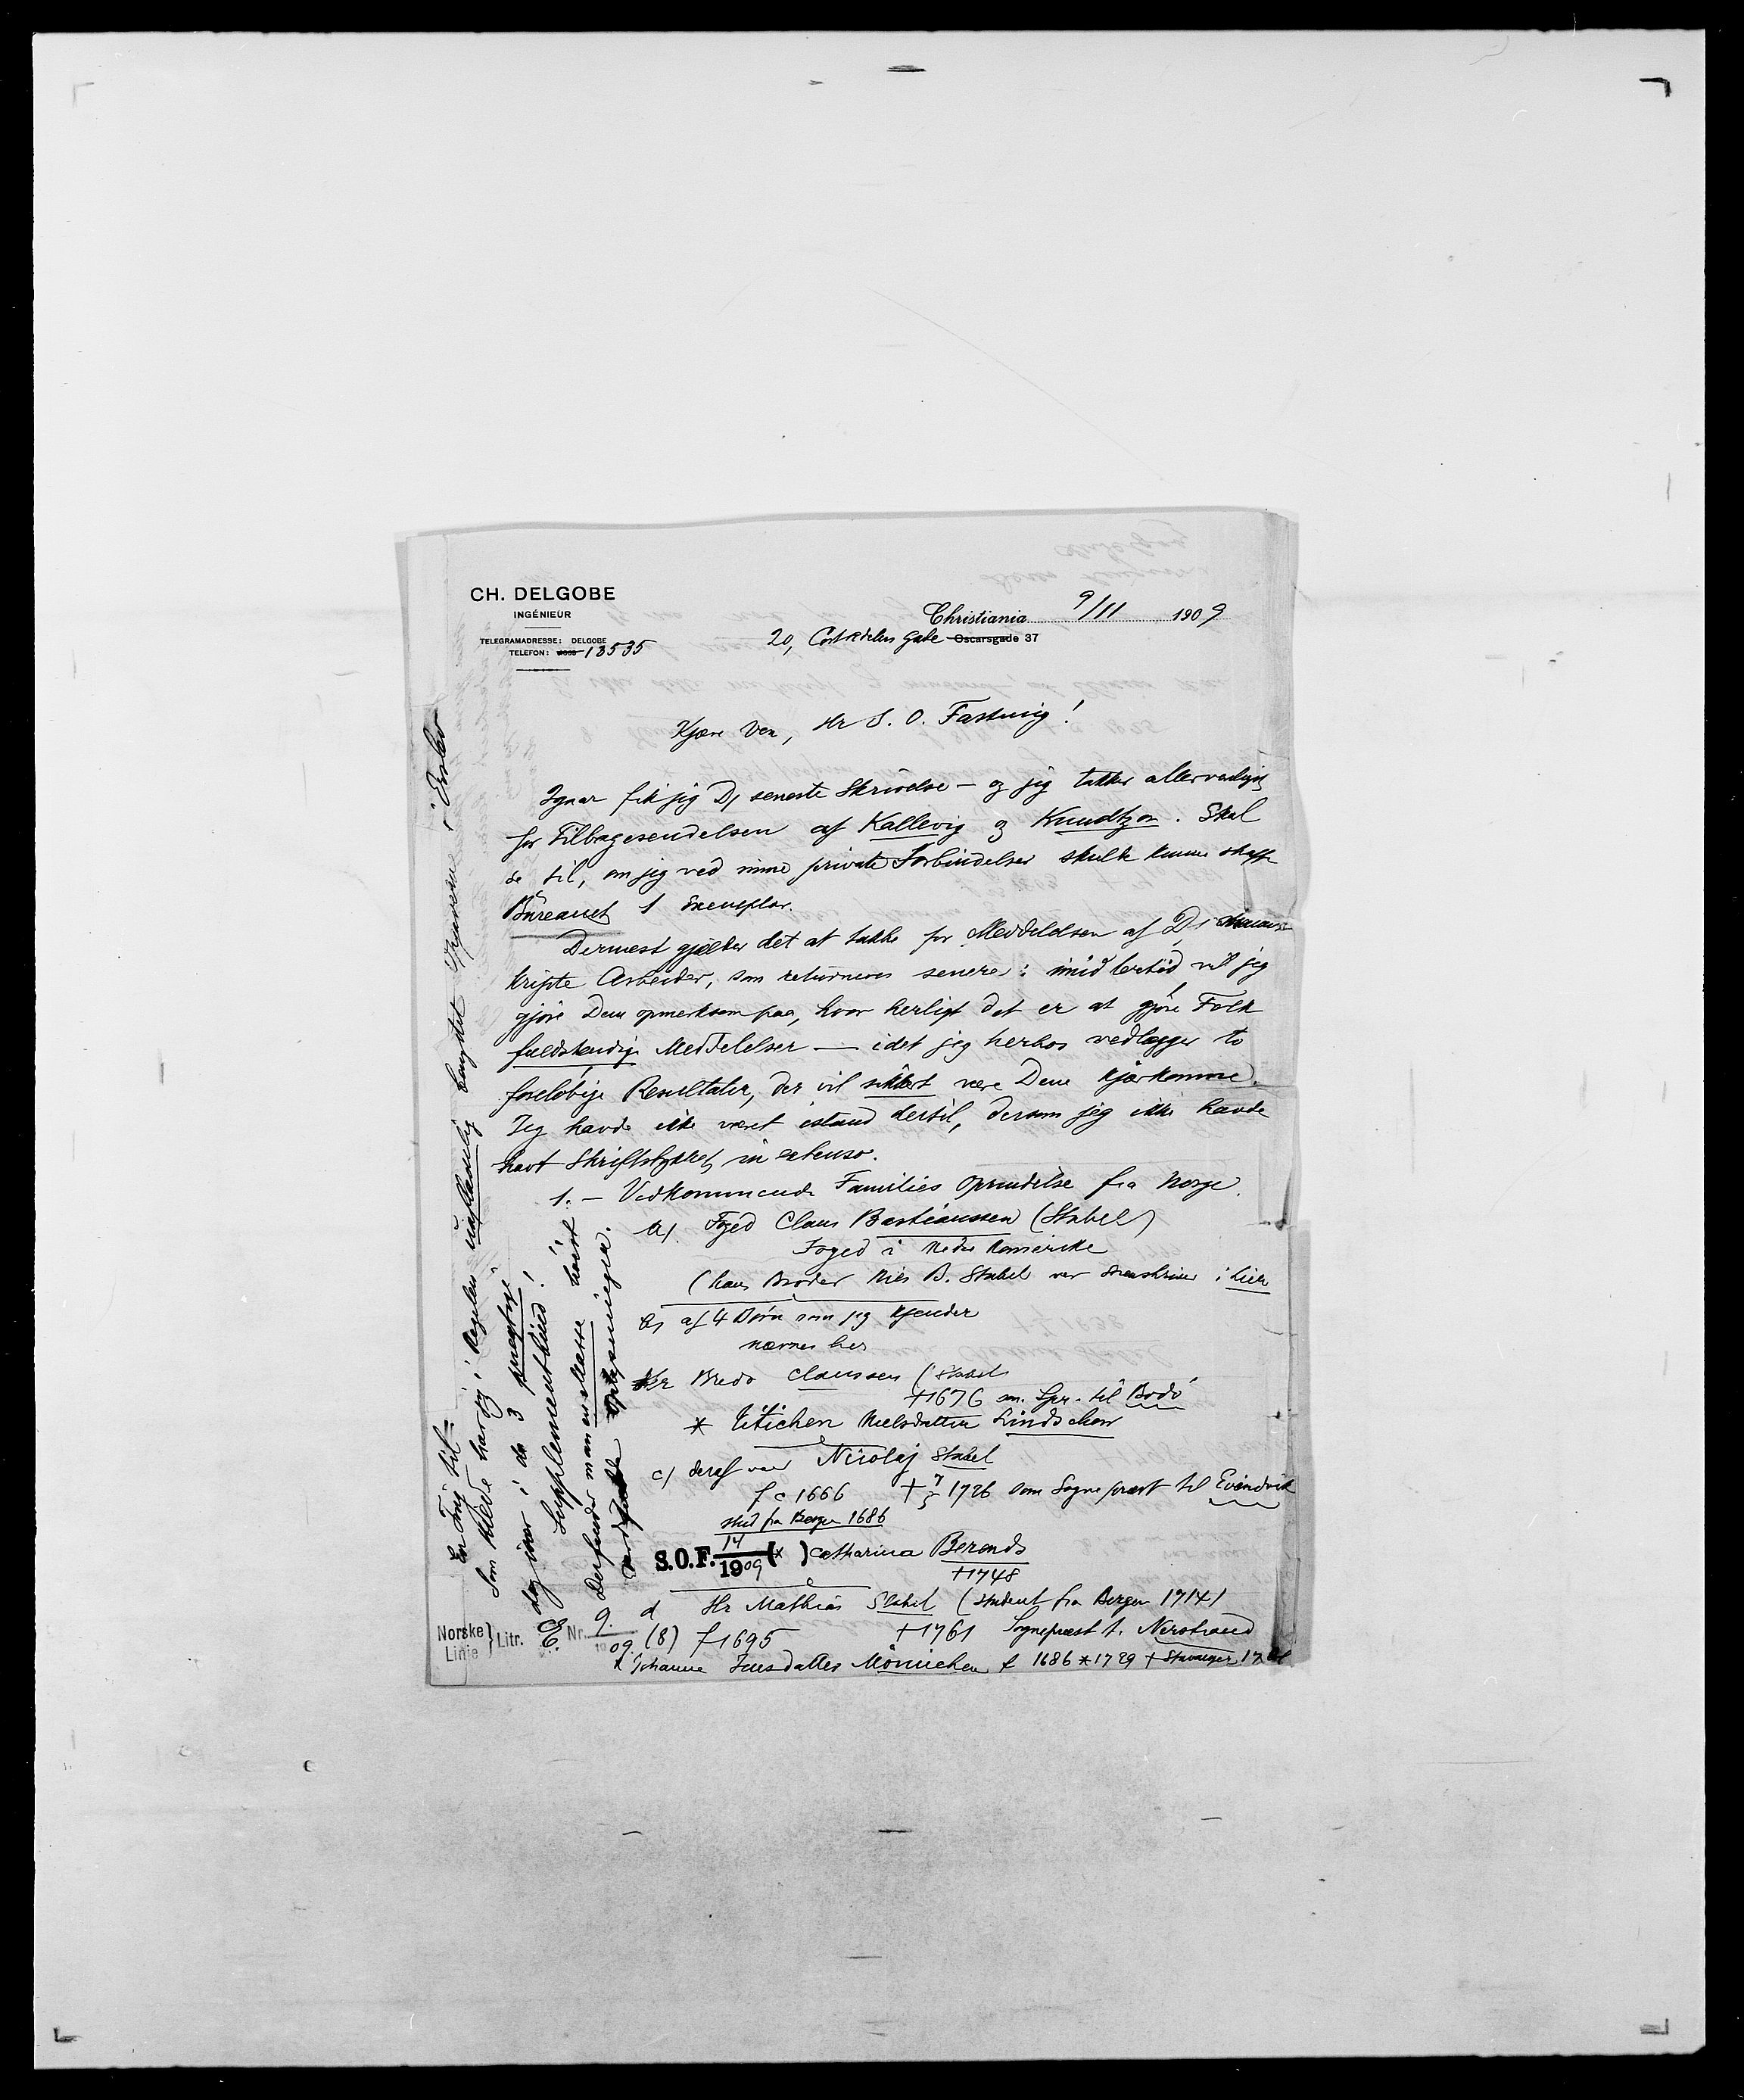 CH. DELGOBE
INGÉNIEUR
TELEGRAMADRESSE: DELGOBE
TELEFON: 13535
Christiania 9/11 1909
20, Gade Oscarsgade 37
Kjære Ven, Hr S. O. Fastnig!
Igaar fik jeg Ds seneste Skrivelse — og jeg takker allervenligst
for Tilbagesendelsen af Kallevig og Knudtzon. Skal
se til, om jeg ved mine private Forbindelser skulde kunne skaffe
Büreauet 1 Exemplar.
Dernæst gjælder det at takke for Meddelelsen af Ds
kripte Arbeider, som returneres senere: imidlertid vil jeg
gjöre Dem opmerksom paa, hvor herligt det er at gjöre Folk
fuldstændige Meddelelser — idet jeg herhos vedlægger to
forelöbige Resultater, der vil sikkert være Dem kjærkomne.
Jeg havde ikke været istand dertil, dersom jeg ikke havde
havt Skriftstykket in extenso.
1. — Vedkommende Familiens Oprindelse fra Norge.
a/. Foged Claus Bastianssen (Stabel)
Foged i Nedre Romerike
(hans Broder Nils B. Stabel var Sorenskriver i
b, af 4 Börn som jeg kjender
nævnes her
Hr Bredo Claussen (Stabel
†1676 som Spr. til Bodö
* Titichen Nielsdatter Lindschou
c/ deraf var Nicolaj Stabel
f c 1666 † 1726 som Sognepræst til Evindvik
stud fra Bergen 1686
S.O.F. 14/1909 (* ) Catharina Berends
†1748
d Hr Mathias Stabel (Student fra Bergen 1714)
(8) f 1695 †1761 Sognepræst t. Nerstrand
* Johanne Jensdatter Mönnichen f 1686 *1729 † Stavanger
Norske Linie } Litr. E. Nr. 9. 1909
En Ting til:
som Kilde har jeg i Regelen uafladelig benyttet
dog iver i de 3
Supplementbind!
Derfinder man en Masse höist
Oplysninger.